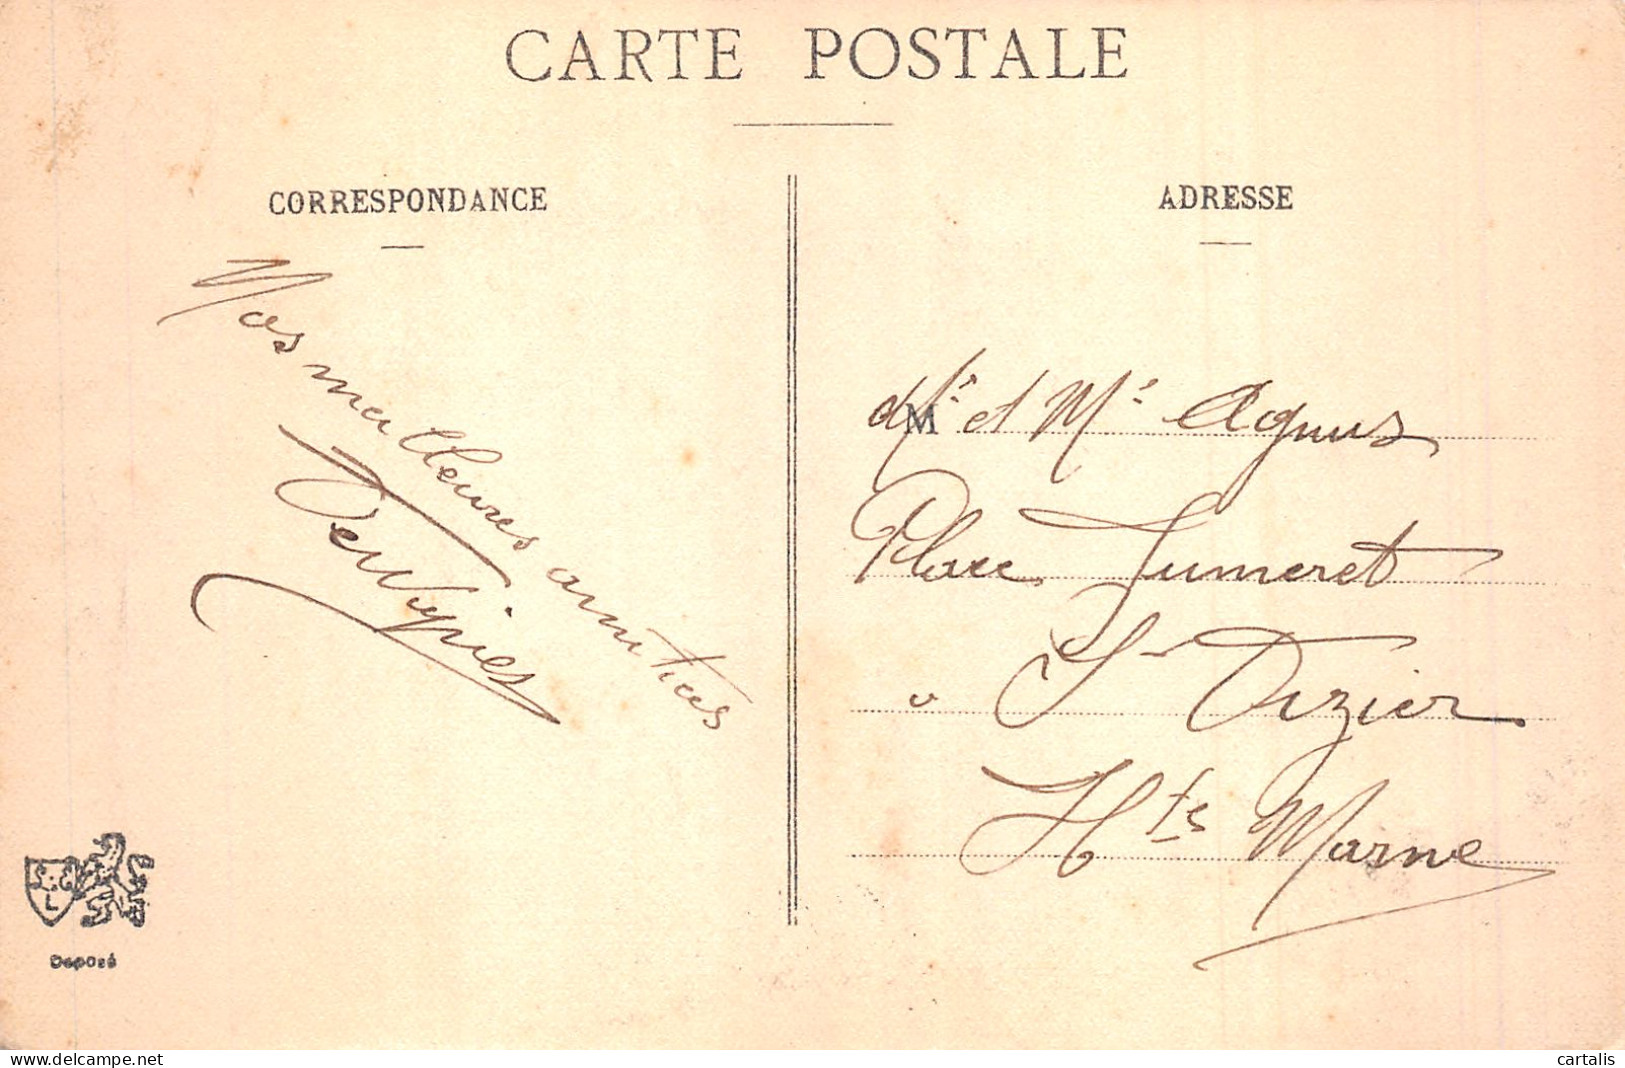 CARTE POSTALE
CORRESPONDANCE
Nos meilleures amitiés
ADRESSE
Mr et Me Agnus
M
Place Jumeret
à St Dizier
Hte Marne
S.G
L
Déposé
delcampe.net
cartalis